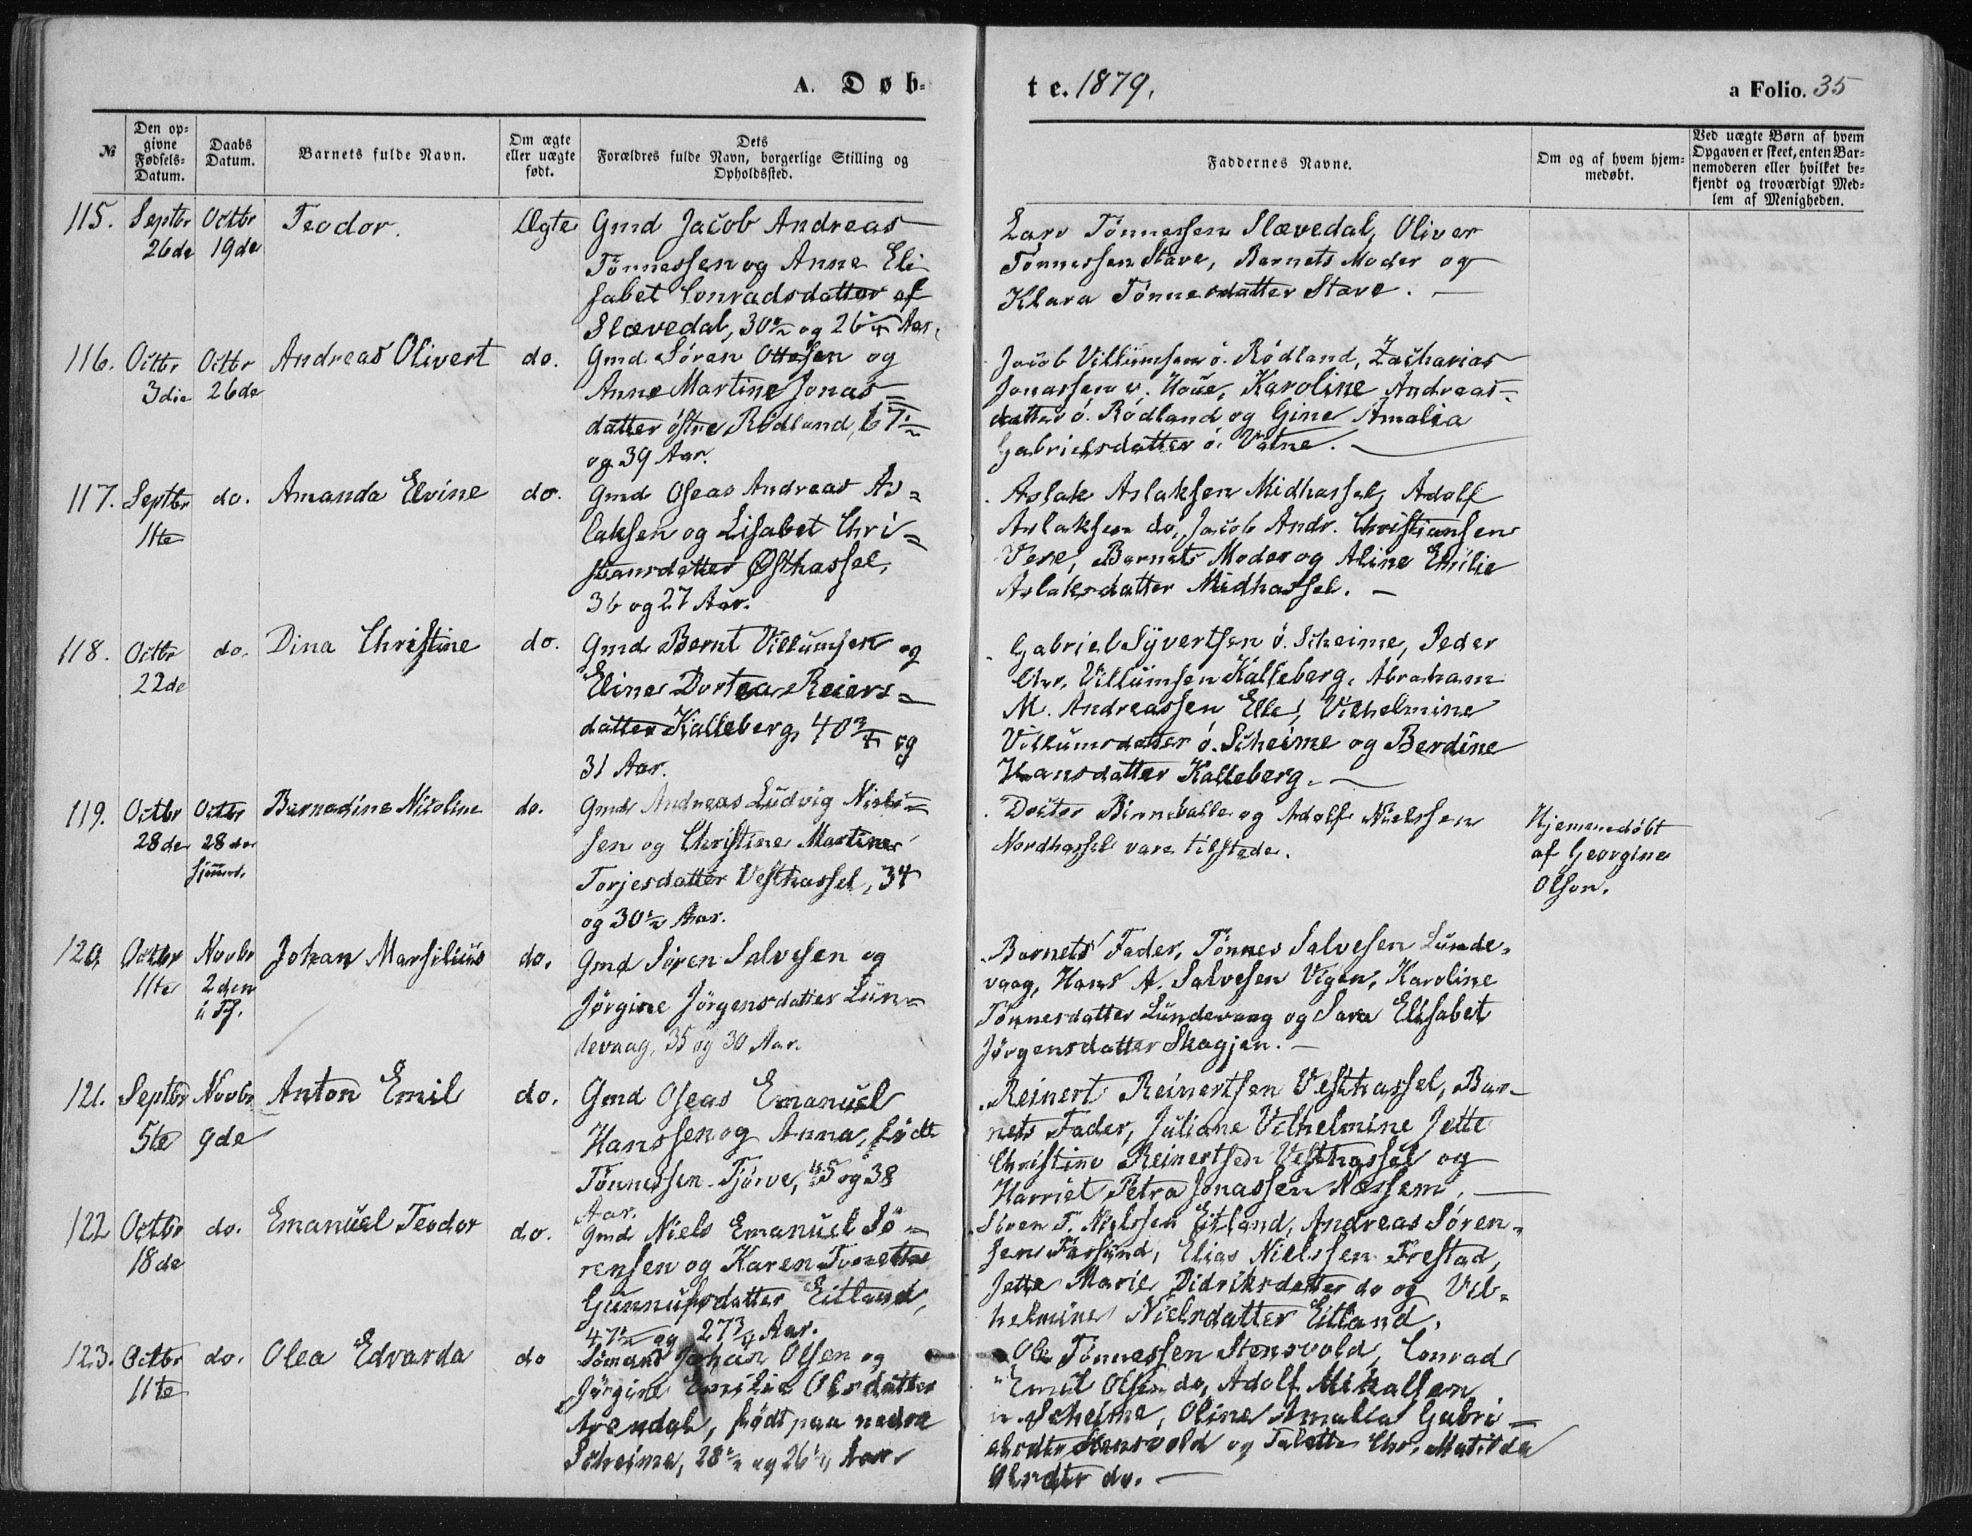 A. Døb-
te. 1879.
a Folio. 35
№
Den op-
givne
Fødsels-
Datum.
Daabs
Datum.
Barnets fulde Navn.
Om ægte
eller uægte
født.
Dets
Forældres fulde Navn, borgerlige Stilling og
Opholdssted.
Faddernes Navne.
Om og af hvem hjem-
medøbt.
Ved uægte Børn af hvem
Opgaven er skeet, enten Bar-
nemoderen eller hvilket be-
kjendt og troværdigt Med-
lem af Menigheden.
115.
Septbr
26de
Octbr
19de
Teodor.
Ægte
Gmd Jacob Andreas
Tønnessen og Anne Eli
sabet Conradsdatter af
Slævedal, 30½ og 26 Aar.
Lars Tønnessen Slævedal, Oliver
Tønnessen Stave, Barnets Moder og
Klara Tønnesdatter Stave. —
116.
Octbr
3die
Octbr
26de
Andreas Olivert
do.
Gmd Søren Ottesen og
Anne Martine Jonas=
datter østre Rødland, 67½
og 39 Aar.
Jacob Villumsen ø. Rødland, Zacharias
Jonassen v. Houe, Karoline Andreas-
datter ø. Rødland og Gine Amalia
Gabrielsdatter ø. Vatne. —
117.
Septbr
11te
do.
Amanda Elvine
do.
Gmd Oseas Andreas As=
laksen og Lisabet Chri=
stiansdatter Østhassel,
36 og 27 Aar.
Aslak Aslaksen Midhassel, Adolf
Aslaksen do, Jacob Andr. Christiansen
Vere, Barnets Moder og Aline Emilie
Aslaksdatter Midhassel. —
118.
Octbr
22de
do.
Dina Christine
do.
Gmd Bernt Villumsen og
Eline Dortea Reiers=
datter Kalleberg, 40¾ og
31 Aar.
Gabriel Syvertsen ø. Skeime, Peder
Chr. Villumsen Kalleberg, Abraham
M. Andreassen Elle, Vilhelmine
Villumsdatter ø. Skeime og Berdine
Hansdatter Kalleberg. —
119.
Octbr
28de
Octbr
28de
hjemmed.
Bernadine Nicoline
do.
Gmd Andreas Ludvig Niel=
sen og Christine Martine
Torjesdatter Vesthassel, 34
og 30½ Aar.
Doctor Binneballe og Adolf Nielssen
Nordhassel vare tilstede.
Hjemmedøbt
af Georgine
Olsen.
120.
Octbr
11te
Novbr
2den
i Kj.
Johan Marsilius
do.
Gmd Søren Salvesen og
Jørgine Jørgensdatter Lun=
devaag, 35 og 30 Aar.
Barnets Fader, Tønnes Salvesen Lunde-
vaag, Hans A. Salvesen Vigen, Karoline
Tønnesdatter Lundevaag og Sara Elisabet
Jørgensdatter Skagjen. —
121.
Septbr
5te
Novbr
9de
Anton Emil
do.
Gmd Oseas Emanuel
Hanssen og Anna, født
Tønnessen Tjørve, 45 og 38
Aar.
Reinert Reinertsen Vesthassel, Bar-
nets Fader, Juliane Vilhelmine Jette
Christine Reinertsen Vesthassel og
Harriet Petra Jonassen Næssem. —
122
Octbr
18de
do.
Emanuel Teodor
do.
Gmd Niels Emanuel Sø=
rensen og Karen Tonette
Gunnufsdatter Eitland,
47½ og 27¾ Aar.
Søren T. Nielssen Eitland, Andreas Søren-
sen Farsund, Elias Nielssen Frestad,
Jette Marie Didriksdatter do og Vil-
helmine Nielsdatter Eitland.
123.
Octbr
11te
do.
Olea Edvarda
do
Sømand Johan Olsen og
Jørgine Emilie Olsdatter
Arendal, født paa nedre
Skeime, 28½ og 26½ Aar.
Ole Tønnessen Stensvold, Conrad
Emil Olsen do, Adolf Mikalsen
n Skeime, Oline Amalia Gabri-
elsdtr Stensvold og Talette Chr. Matilda
Olsdtr do. —